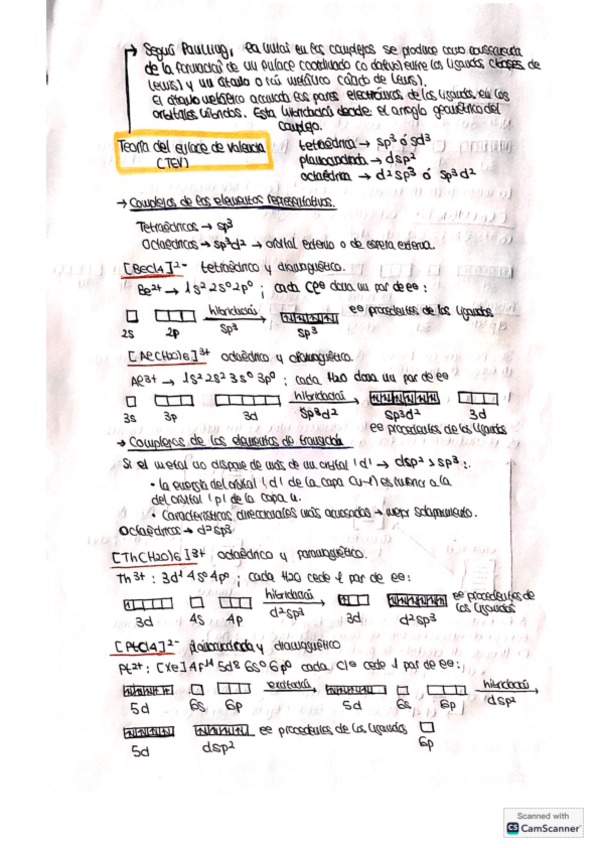 → Según Pauling, la unión en los complejos se produce como consecuencia
de la formación de un enlace coordinado (o dativo) entre los ligandos (bases de
Lewis) y un átomo o ión metálico (ácido de Lewis).
El átomo metálico acomoda los pares electrónicos de los ligandos, en los
orbitales híbridos. Esta hibridación decide el arreglo geométrico del
complejo.
Teoría del enlace de valencia
(TEV)
tetraédrica → sp³ ó sd³
planocuadrada → dsp²
octaédrica → d²sp³ ó sp³d²
→ Complejos de los elementos representativos.
Tetraédricos → sp³
Octaédricos → sp³d² → orbital externo o de esfera externa.
[BeCl4]²⁻ tetraédrico y diamagnético.
Be²⁺ → 1s² 2s⁰ 2p⁰ ; cada Cl⊖ dona un par de e⊖ :
2s 2p hibridación sp³ sp³ e⊖ procedentes de los ligandos
[Al(H2O)6]³⁺ octaédrico y diamagnético.
Al³⁺ → 1s² 2s² 3s⁰ 3p⁰ ; cada H2O dona un par de e⊖
3s 3p 3d hibridación sp³d² sp³d² 3d
e⊖ procedentes de los ligandos
→ Complejos de los elementos de transición
Si el metal no dispone de más de un orbital 'd' → dsp² > sp³ :
• La energía del orbital 'd' de la capa (n-1) es menor a la
del orbital 'p' de la capa n.
• Características direccionales más acusadas → mejor solapamiento.
Octaédricos → d²sp³
[Th(H2O)6]³⁺ octaédrico y paramagnético.
Th³⁺ : 3d¹ 4s⁰ 4p⁰ ; cada H2O cede 1 par de e⊖ :
3d 4s 4p hibridación d²sp³ 3d d²sp³ e⊖ procedentes de
los ligandos
[PtCl4]²⁻ planocuadrada y diamagnético
Pt²⁺ : [Xe] 4f¹⁴ 5d⁸ 6s⁰ 6p⁰ cada Cl⊖ cede 1 par de e⊖ :
5d 6s 6p excitación 5d 6s 6p hibridación dsp²
5d dsp² e⊖ procedentes de los ligandos 6p
Scanned with
CS CamScanner